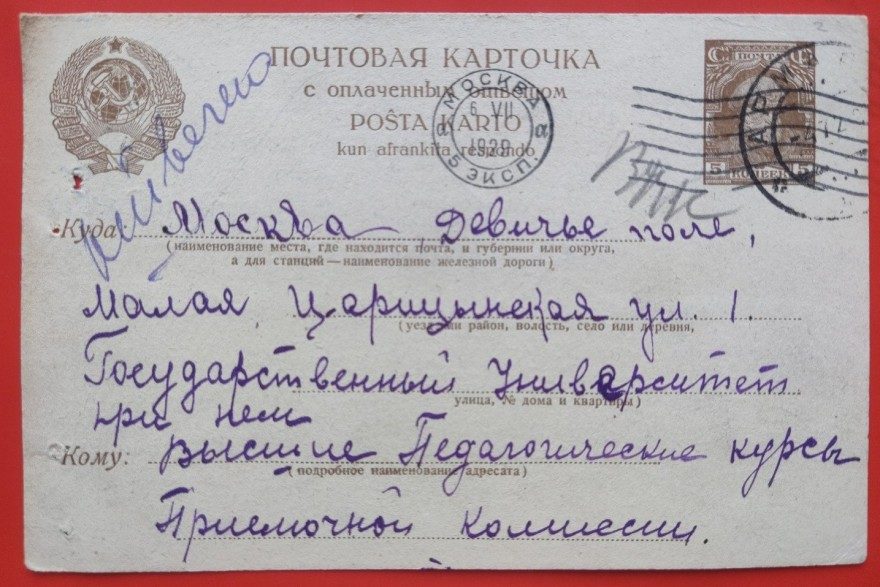 ПОЧТОВАЯ КАРТОЧКА
с оплаченным ответом
POŜTA KARTO
kun afrankita respondo
МОСКВА
6 VII
1929
5 ЭКСП.
ПОЧТА
5 КОПЕЕК 5
Куда: Москва, Девичье поле,
(наименование места, где находится почта, и губернии или округа,
а для станций — наименование железной дороги)
Малая Царицынская ул. 1.
(уезд или район, волость, село или деревня,
Государственный Университет
улица, № дома и квартиры)
при нем
Кому: Высшие Педагогические курсы
(подробное наименование адресата)
Приемочной Комиссии.